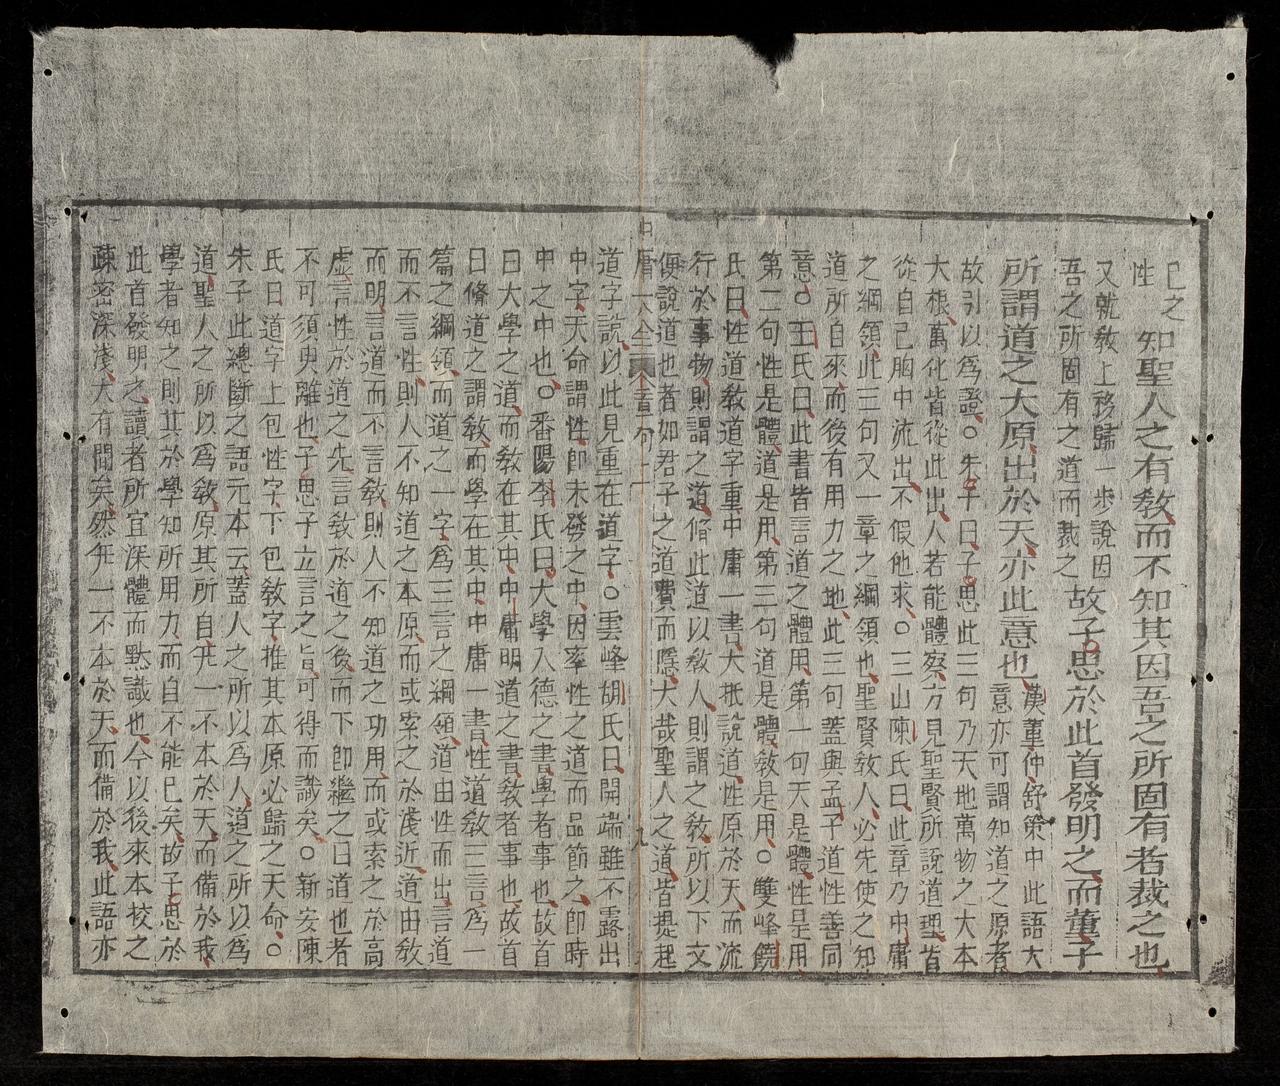 己之
性
知聖人之有敎而不知其因吾之所固有者裁之也
又就敎上移歸一步說因
吾之所固有之道而裁之
故子思於此首發明之而董子
所謂道之大原出於天亦此意也
漢董仲舒策中此語大
意亦可謂知道之原者
故引以爲證○朱子曰子思此三句乃天地萬物之大本
大根萬化皆從此出人若能體察方見聖賢所說道理皆
從自己胸中流出不假他求○三山陳氏曰此章乃中庸
之綱領此三句又一章之綱領也聖賢敎人必先使之知
道所自來而後有用力之地此三句蓋與孟子道性善同
意○王氏曰此書皆言道之體用第一句天是體性是用
第二句性是體道是用第三句道是體敎是用○雙峰饒
氏曰性道敎道字重中庸一書大抵說道性原於天而流
行於事物則謂之道脩此道以敎人則謂之敎所以下文
便說道也者如君子之道費而隱大哉聖人之道皆提起
中庸 大全 章句上 九
道字說以此見重在道字○雲峰胡氏曰開端雖不露出
中字天命謂性卽未發之中因率性之道而品節之卽時
中之中也○番陽李氏曰大學入德之書學者事也故首
曰大學之道而敎在其中中庸明道之書敎者事也故首
曰脩道之謂敎而學在其中中庸一書性道敎三言爲一
篇之綱領而道之一字爲三言之綱領道由性而出言道
而不言性則人不知道之本原而或索之於淺近道由敎
而明言道而不言敎則人不知道之功用而或索之於高
虛言性於道之先言敎於道之後而下卽繼之曰道也者
不可須臾離也子思子立言之旨可得而識矣○新安陳
氏曰道字上包性字下包敎字推其本原必歸之天命○
朱子此總斷之語元本云蓋人之所以爲人道之所以爲
道聖人之所以爲敎原其所自无一不本於天而備於我
學者知之則其於學知所用力而自不能已矣故子思於
此首發明之讀者所宜深體而默識也今以後來本校之
疎密深淺大有間矣然无一不本於天而備於我此語亦